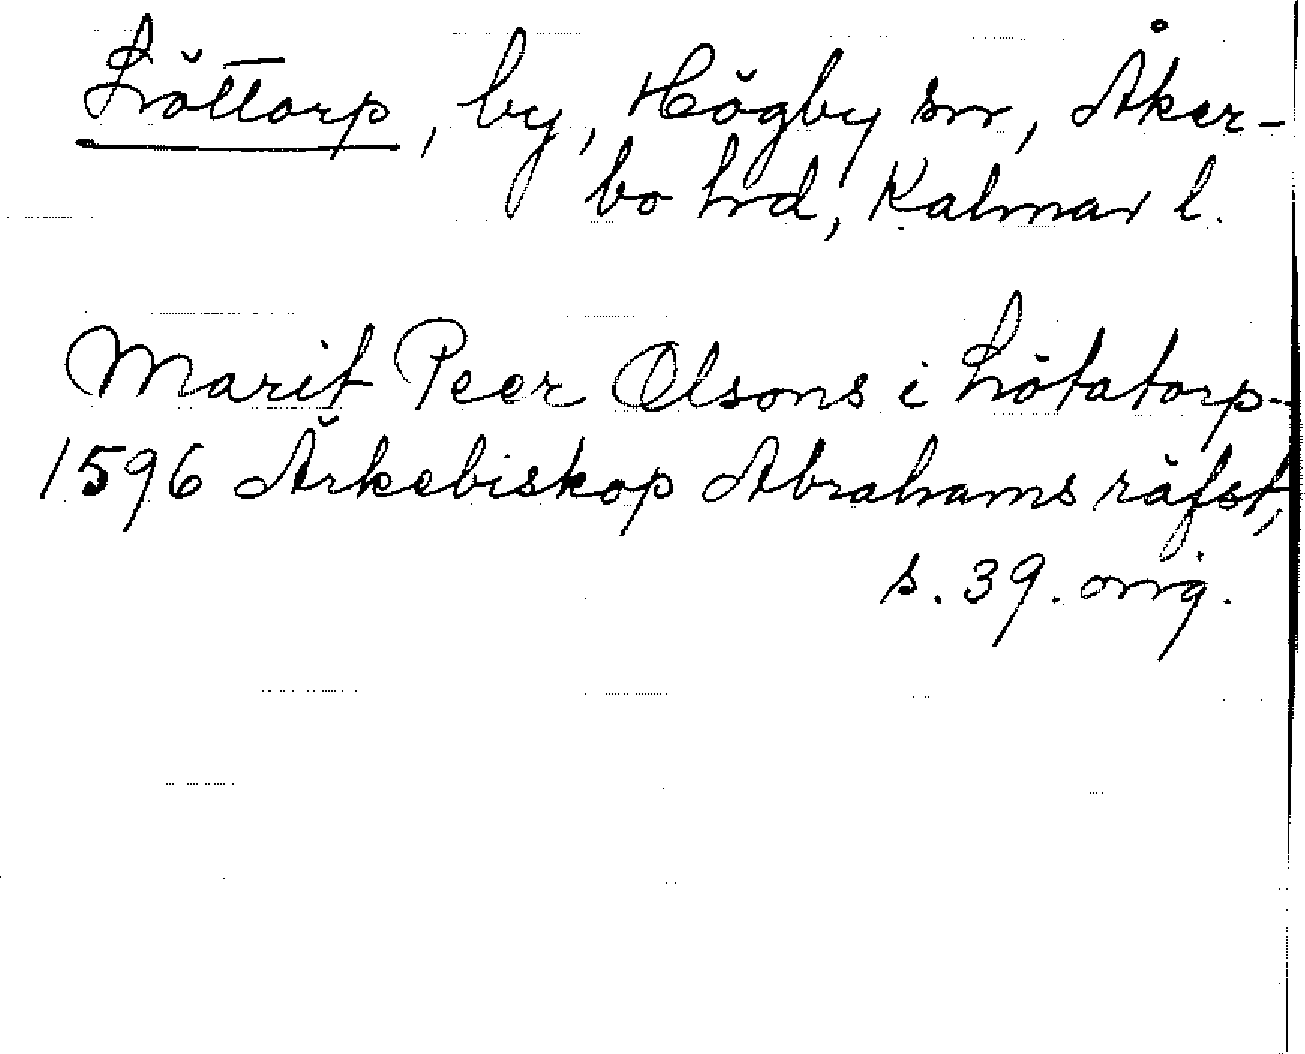 Löttorp, by, Högby sn, Åker-
bo hd, Kalmar l.
Marit Peer Olsons i Lötatorp
1596 Ärkebiskop Abrahams räfst,
s. 39. orig.